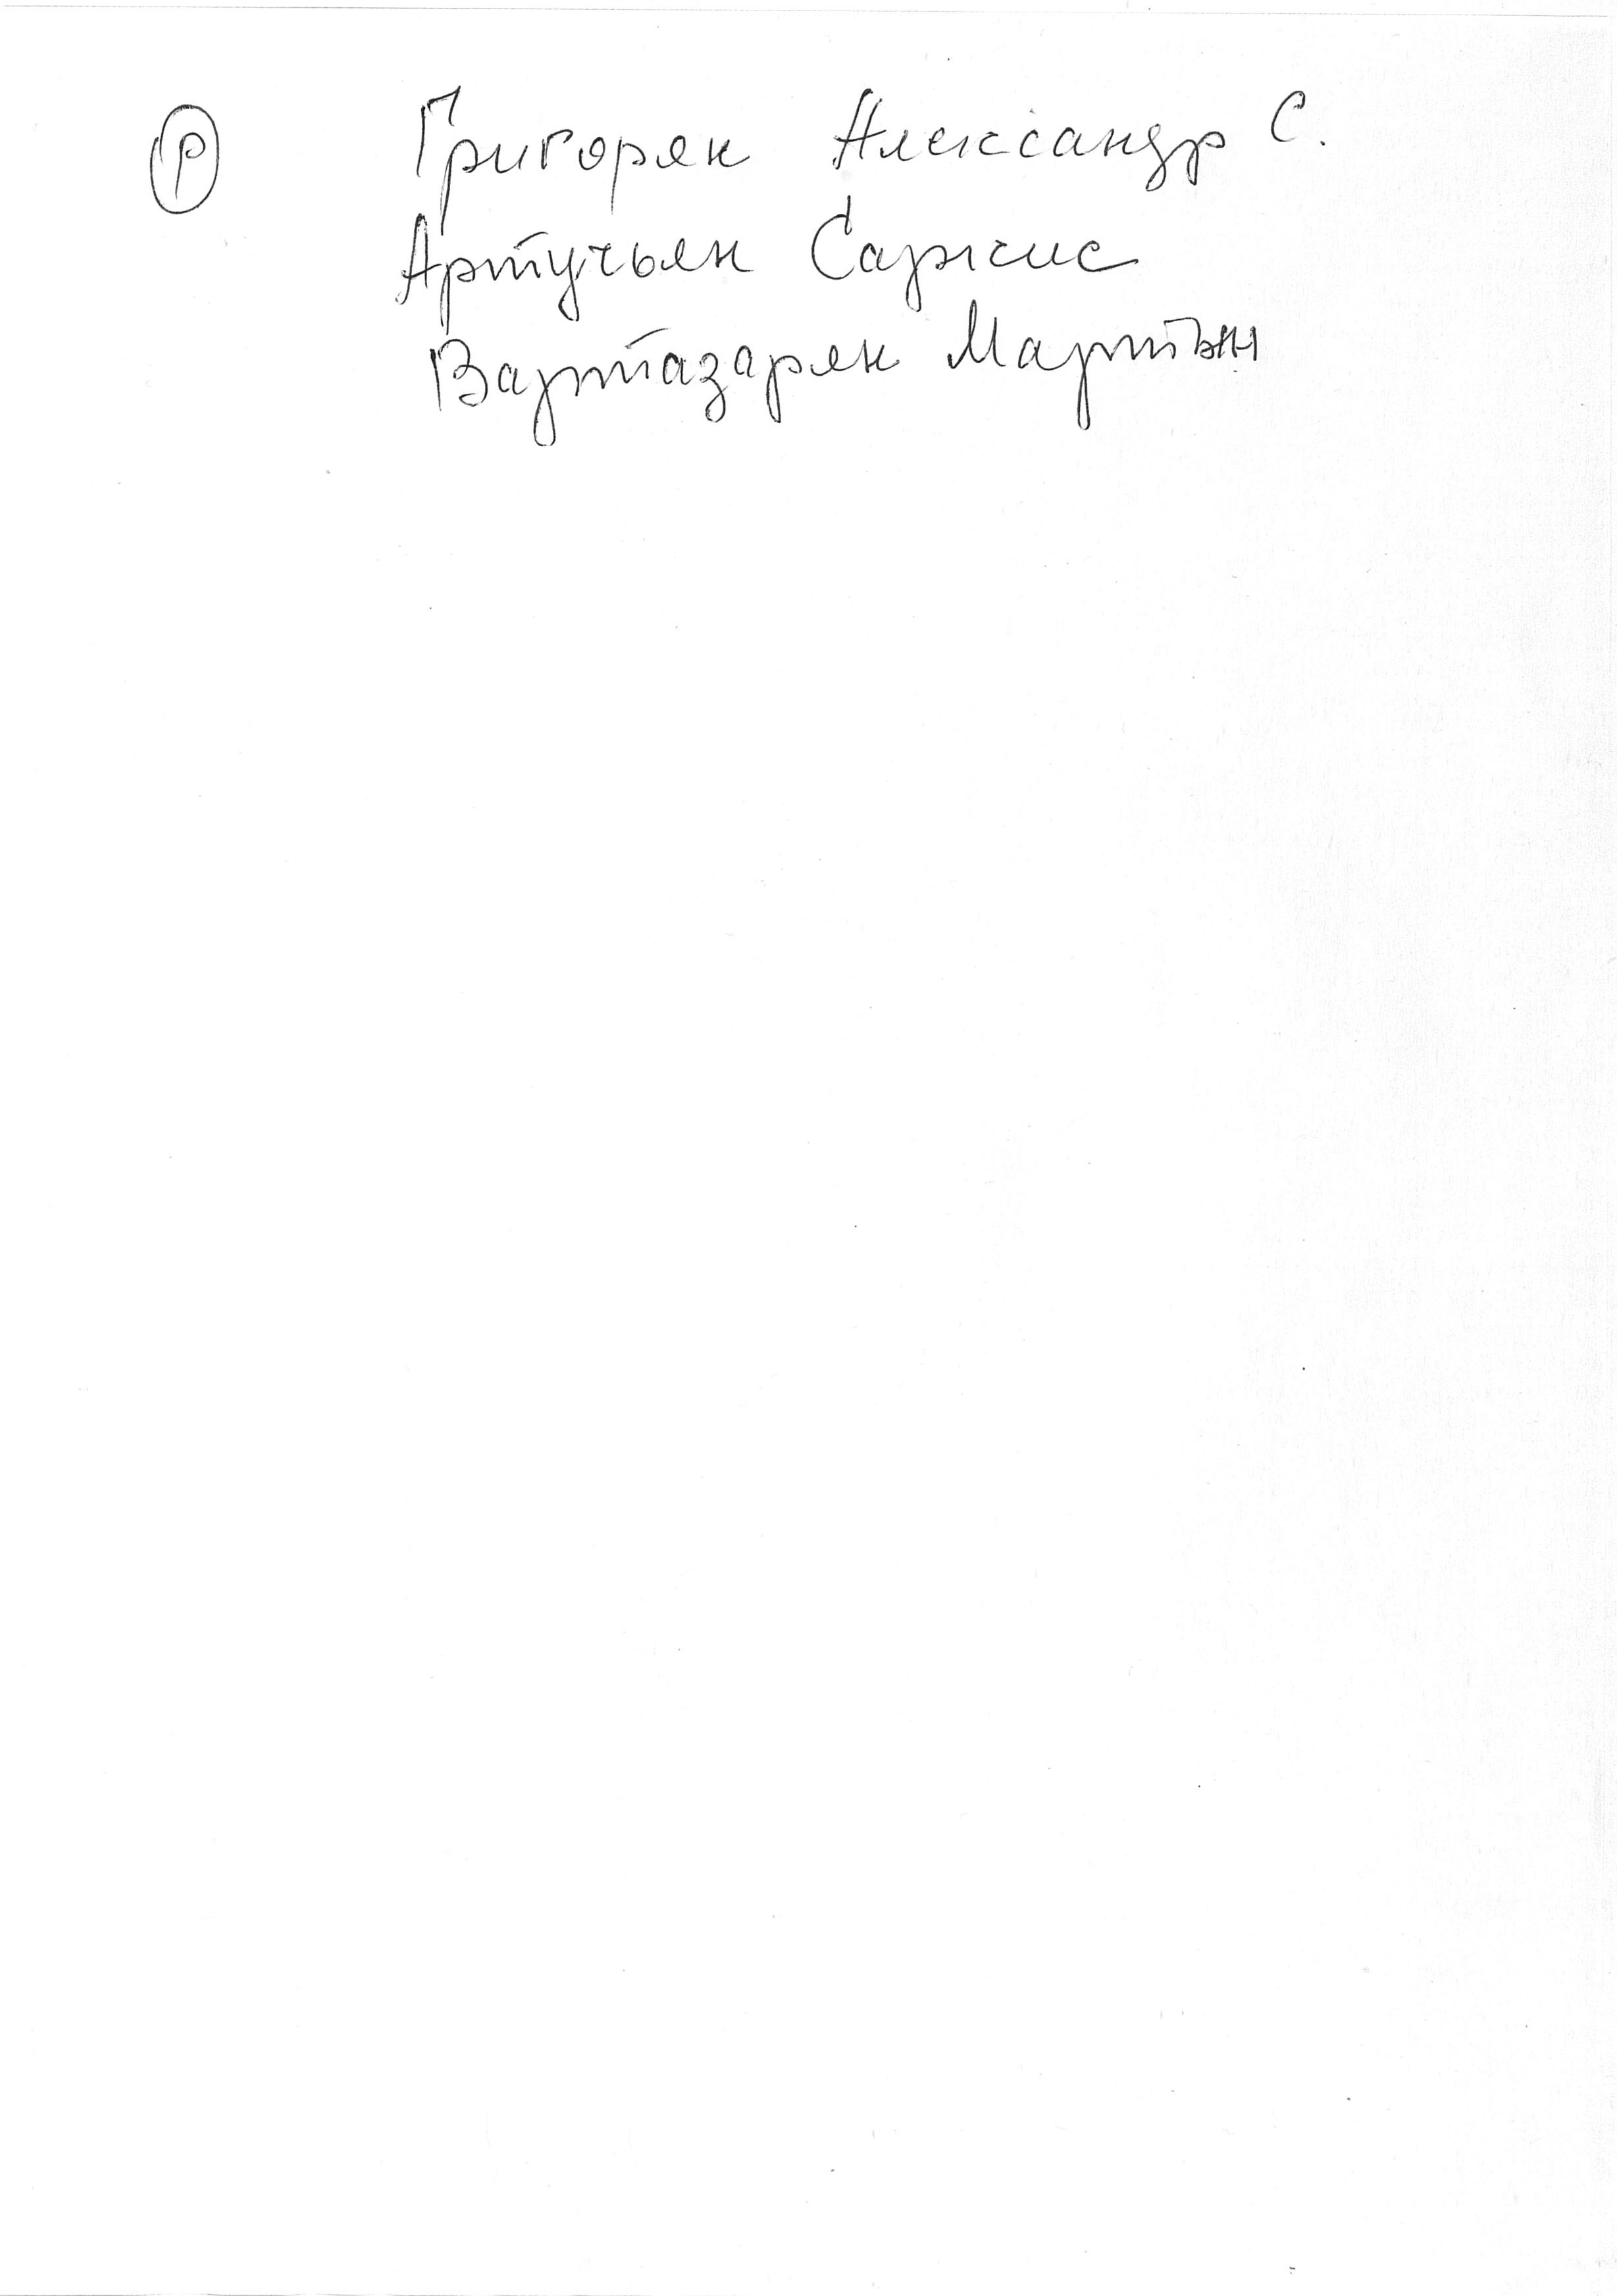 Р Григорян Александр С.
Артучьян Саркис
Вартазарян Мартын